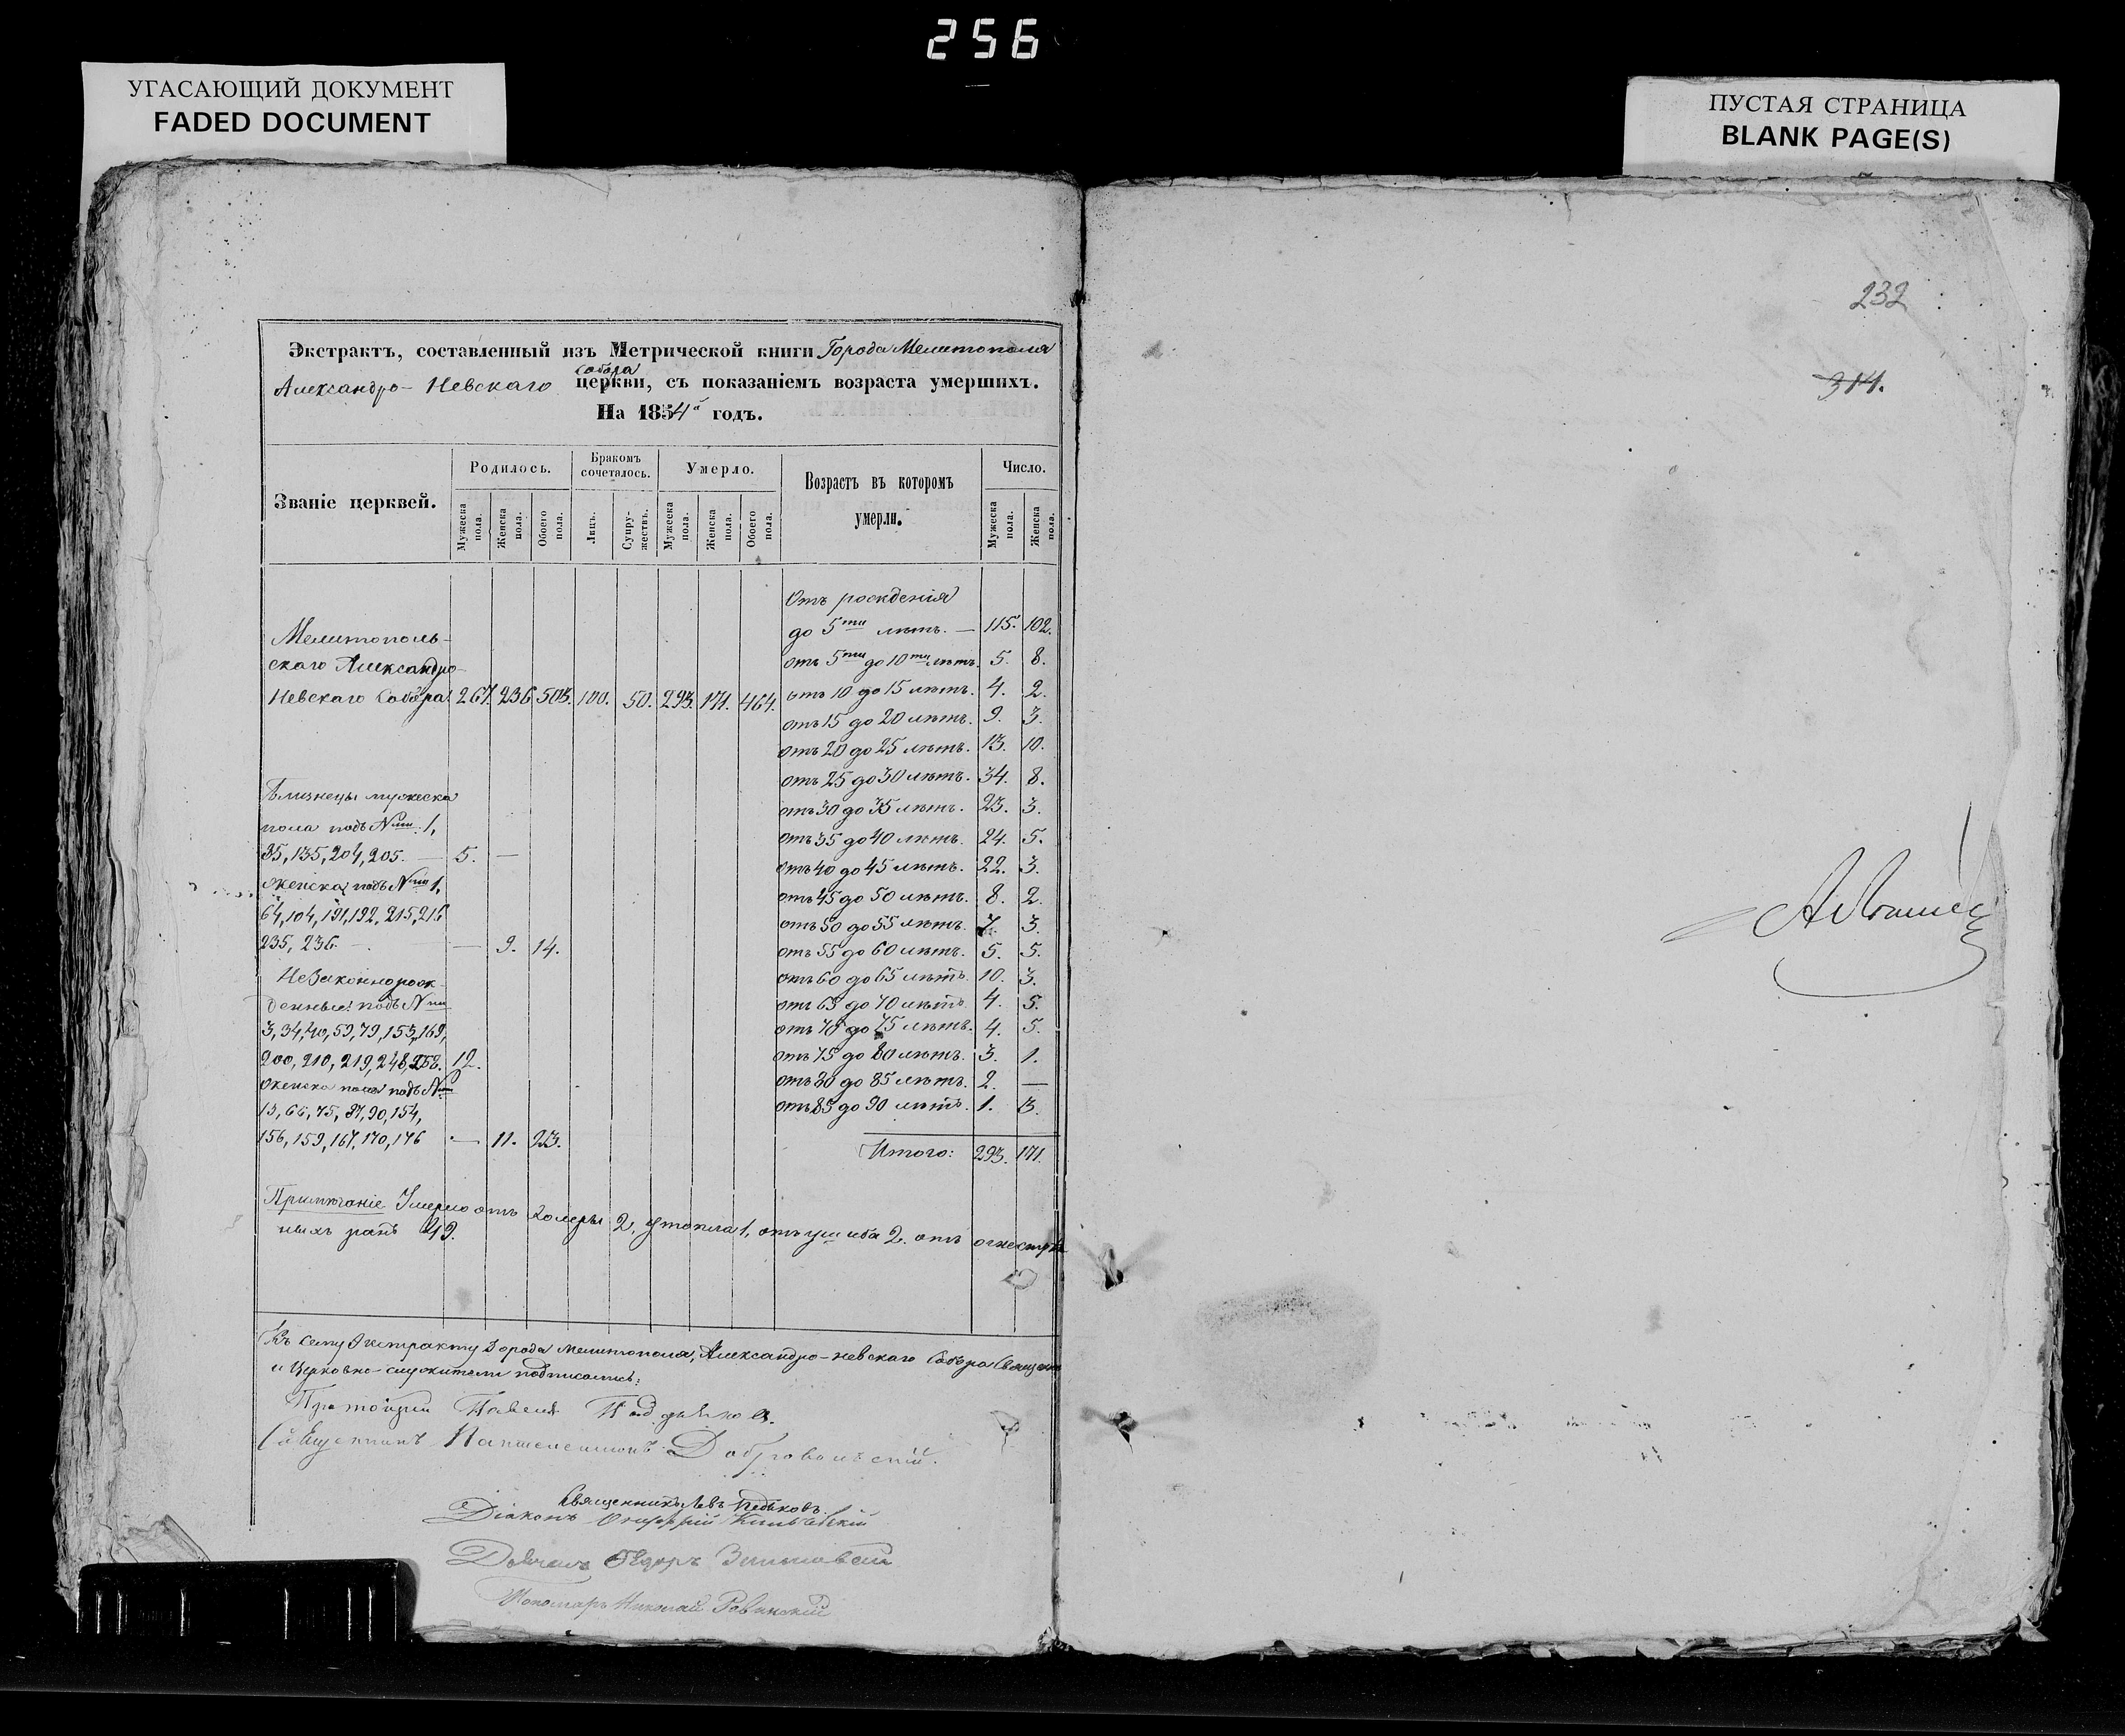 256
УГАСАЮЩИЙ ДОКУМЕНТ
FADED DOCUMENT
ПУСТАЯ СТРАНИЦА
BLANK PAGE(S)
232
314.
Экстрактъ, составленный изъ Метрической книги Города Мелитополя
Александро-Невскаго Собора церкви, съ показаніемъ возраста умершихъ.
На 1854й годъ.
Званіе церквей.
Родилось.
Бракомъ сочеталось.
Умерло.
Возрастъ въ которомъ умерли.
Число.
Мужеска пола.
Женска пола.
Обоего пола.
Лицъ.
Супружествъ.
Мужеска пола.
Женска пола.
Обоего пола.
Мужеска пола.
Женска пола.
Мелитополь-
скаго Александро-
Невскаго Собора 267. 236 503. 100. 50. 293. 171. 464.
Близнецы мужеска
пола подъ №ми 1,
35, 135, 204, 205. — 5. —
женска подъ №ми 1,
64, 104, 191, 192, 215, 216
235, 236. — — 9. 14.
Незаконнорож-
денные: подъ №ми
3, 34, 40, 59, 79, 153, 169,
200, 210, 219, 248, 258. 12.
женска пола подъ №ми
13, 66, 75, 87, 90, 154,
156, 159, 167, 170, 176 — 11. 23.
Отъ рожденія
до 5ти лѣтъ. — 115. 102.
отъ 5ти до 10ти лѣтъ. 5. 8.
отъ 10 до 15 лѣтъ. 4. 2.
отъ 15 до 20 лѣтъ. 9. 3.
отъ 20 до 25 лѣтъ. 13. 10.
отъ 25 до 30 лѣтъ. 34. 8.
отъ 30 до 35 лѣтъ. 23. 3.
отъ 35 до 40 лѣтъ. 24. 5.
отъ 40 до 45 лѣтъ. 22. 3.
отъ 45 до 50 лѣтъ. 8. 2.
отъ 50 до 55 лѣтъ. 7. 3.
отъ 55 до 60 лѣтъ. 5. 5.
отъ 60 до 65 лѣтъ. 10. 3.
отъ 65 до 70 лѣтъ 4. 5.
отъ 70 до 75 лѣтъ. 4. 5.
отъ 75 до 80 лѣтъ. 3. 1.
отъ 80 до 85 лѣтъ. 2. —
отъ 85 до 90 лѣтъ. 1. 3.
Итого: 293. 171.
Примѣчаніе Умерло отъ холеры 2, утопла 1, отъ ушиба 2. отъ огнестрѣль
ныхъ ранъ 49.
Къ сему Экстракту Города Мелитополя, Александро-невскаго Собора Священно
и Церковно-служители подписались:
Протоіерей Павелъ
Священникъ Добровольскій.
Священникъ Левъ
Діаконъ
Ѳедоръ
Пономарь Николай Ровинскій